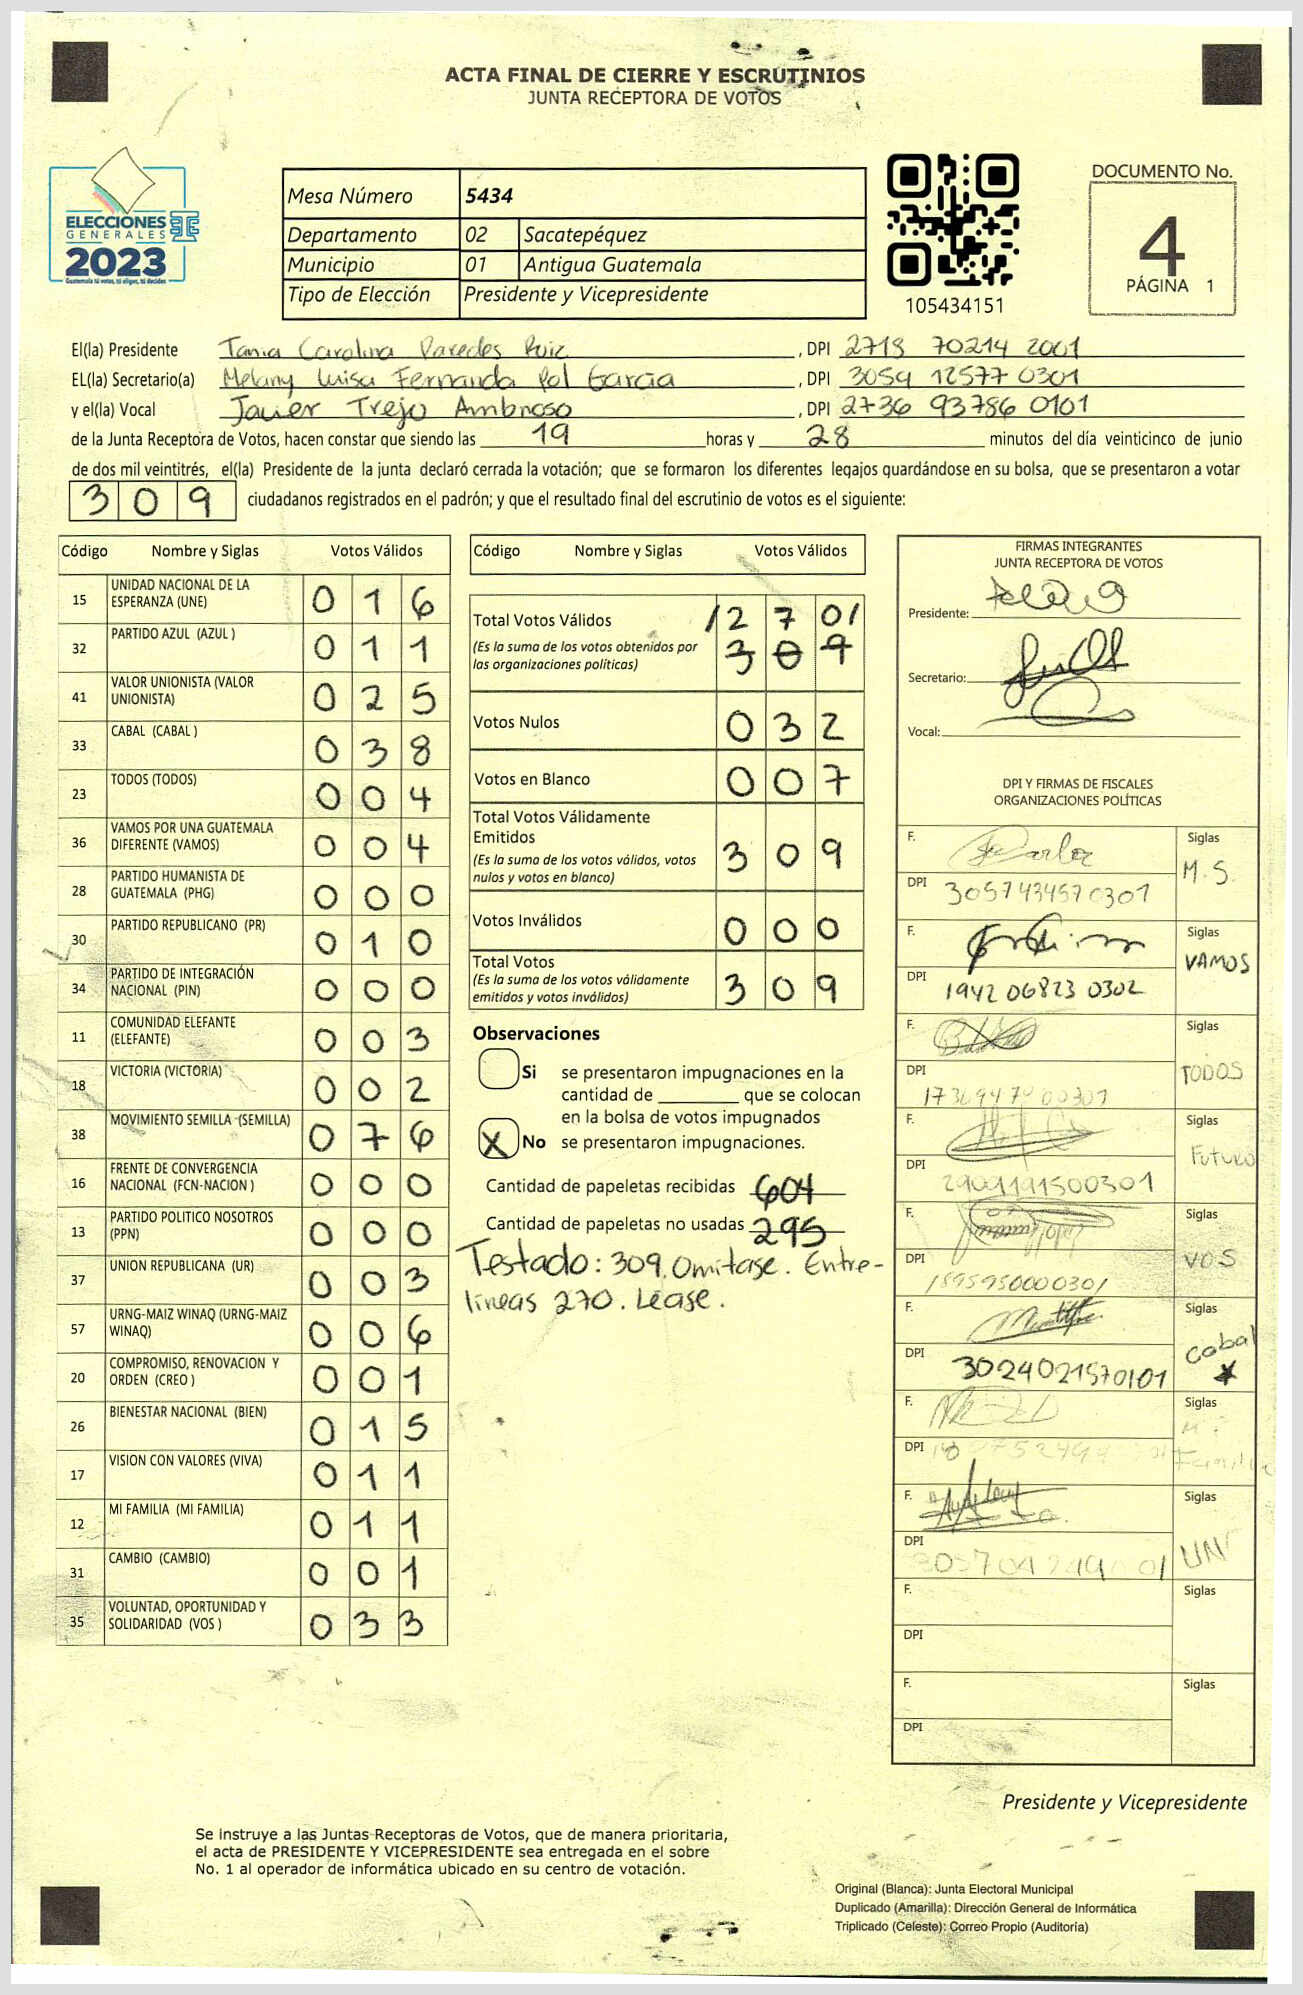 ACTA FINAL DE CIERRE Y ESCRUTINIOS
JUNTA RECEPTORA DE VOTOS
ELECCIONES
GENERALES
2023
Guatemala tú votas, tú eliges, tú decides
Mesa Número 5434
Departamento 02 Sacatepéquez
Municipio 01 Antigua Guatemala
Tipo de Elección Presidente y Vicepresidente
105434151
DOCUMENTO No.
4
PÁGINA 1
El(la) Presidente Tania Carolina Paredes Ruiz, DPI 2718 70214 2001
EL(la) Secretario(a) Melany Luisa Fernanda Pol Garcia, DPI 3054 12577 0301
y el(la) Vocal Javier Trejo Ambroso, DPI 2736 93786 0101
de la Junta Receptora de Votos, hacen constar que siendo las 19 horas y 28 minutos del día veinticinco de junio
de dos mil veintitrés, el(la) Presidente de la junta declaró cerrada la votación; que se formaron los diferentes legajos guardándose en su bolsa, que se presentaron a votar
309 ciudadanos registrados en el padrón; y que el resultado final del escrutinio de votos es el siguiente:
Código Nombre y Siglas Votos Válidos
15 UNIDAD NACIONAL DE LA ESPERANZA (UNE) 0 1 6
32 PARTIDO AZUL (AZUL ) 0 1 1
41 VALOR UNIONISTA (VALOR UNIONISTA) 0 2 5
33 CABAL (CABAL ) 0 3 8
23 TODOS (TODOS) 0 0 4
36 VAMOS POR UNA GUATEMALA DIFERENTE (VAMOS) 0 0 4
28 PARTIDO HUMANISTA DE GUATEMALA (PHG) 0 0 0
30 PARTIDO REPUBLICANO (PR) 0 1 0
34 PARTIDO DE INTEGRACIÓN NACIONAL (PIN) 0 0 0
11 COMUNIDAD ELEFANTE (ELEFANTE) 0 0 3
18 VICTORIA (VICTORIA) 0 0 2
38 MOVIMIENTO SEMILLA (SEMILLA) 0 7 6
16 FRENTE DE CONVERGENCIA NACIONAL (FCN-NACION ) 0 0 0
13 PARTIDO POLITICO NOSOTROS (PPN) 0 0 0
37 UNION REPUBLICANA (UR) 0 0 3
57 URNG-MAIZ WINAQ (URNG-MAIZ WINAQ) 0 0 6
20 COMPROMISO, RENOVACION Y ORDEN (CREO ) 0 0 1
26 BIENESTAR NACIONAL (BIEN) 0 1 5
17 VISION CON VALORES (VIVA) 0 1 1
12 MI FAMILIA (MI FAMILIA) 0 1 1
31 CAMBIO (CAMBIO) 0 0 1
35 VOLUNTAD, OPORTUNIDAD Y SOLIDARIDAD (VOS ) 0 3 3
Código Nombre y Siglas Votos Válidos
Total Votos Válidos /2 7 0/
(Es la suma de los votos obtenidos por las organizaciones políticas) 3 0 9
Votos Nulos 0 3 2
Votos en Blanco 0 0 7
Total Votos Válidamente Emitidos
(Es la suma de los votos válidos, votos nulos y votos en blanco) 3 0 9
Votos Inválidos 0 0 0
Total Votos
(Es la suma de los votos válidamente emitidos y votos inválidos) 3 0 9
Observaciones
Si se presentaron impugnaciones en la
cantidad de ________ que se colocan
en la bolsa de votos impugnados
X No se presentaron impugnaciones.
Cantidad de papeletas recibidas 604
Cantidad de papeletas no usadas 295
Testado: 309. Omitase. Entre-
lineas 270. Léase.
FIRMAS INTEGRANTES
JUNTA RECEPTORA DE VOTOS
Presidente:
Secretario:
Vocal:
DPI Y FIRMAS DE FISCALES
ORGANIZACIONES POLÍTICAS
F. Siglas M.S.
DPI 3057434570301
F. Siglas VAMOS
DPI 1942 06823 0302
F. Siglas TODOS
DPI
F. Siglas Futuro
DPI 2901191500301
F. Siglas VOS
DPI 1895950000301
F. Siglas Cabal
DPI 3024021570101
F. Siglas Mi Familia
DPI
F. Siglas
DPI
F. Siglas
DPI
F. Siglas
DPI
Presidente y Vicepresidente
Se instruye a las Juntas Receptoras de Votos, que de manera prioritaria,
el acta de PRESIDENTE Y VICEPRESIDENTE sea entregada en el sobre
No. 1 al operador de informática ubicado en su centro de votación.
Original (Blanca): Junta Electoral Municipal
Duplicado (Amarilla): Dirección General de Informática
Triplicado (Celeste): Correo Propio (Auditoría)